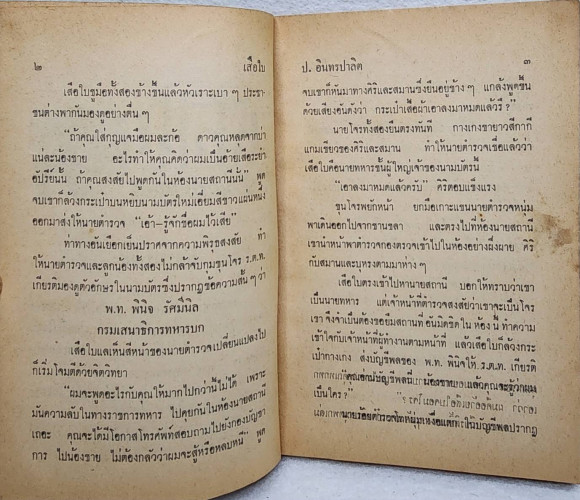 ๒
เสือใบ
เสือใบชูมือทั้งสองข้างขึ้นแล้วหัวเราะเบา ๆ ประชา-
ชนต่างพากันมองดูอย่างตื่น ๆ
"ถ้าคุณใส่กุญแจมือผมละก้อ ดาวคุณหลุดจากบ่า
แน่ละน้องชาย อะไรทำให้คุณคิดว่าผมเป็นอ้ายเสือระยำ
อัปรีย์นั้น ถ้าคุณสงสัยไปพูดกันในห้องนายสถานีนั้น" พูด
จบเขาก็ล้วงกระเป๋าบนหยิบนามบัตรใหม่เอี่ยมสีขาวแผ่นหนึ่ง
ออกมาส่งให้นายตำรวจ "เอ้า-รู้จักชื่อผมไว้เสีย"
ท่าทางอันเยือกเย็นปราศจากความพิรุธสงสัย ทำ
ให้นายตำรวจและลูกน้องทั้งสองไม่กล้าจับกุมขุนโจร ร.ต.ท.
เกียรติมองดูตัวอักษรในนามบัตรซึ่งปรากฏข้อความสั้น ๆ ว่า
พ.ท. พินิจ รัศมีนิล
กรมเสนาธิการทหารบก
เสือใบแลเห็นสีหน้าของนายตำรวจเปลี่ยนแปลงไป
ก็เริ่มโจมตีด้วยจิตวิทยา
"ผมจะพูดอะไรกับคุณให้มากไปกว่านี้ไม่ได้ เพราะ
มันความลับในทางราชการทหาร ไปคุยกันในห้องนายสถานี
เถอะ คุณจะได้มีโอกาสโทรศัพท์สอบถามไปยังกองบัญชา
การ ไปน้องชาย ไม่ต้องกลัวว่าผมจะสู้หรือหลบหนี" พูด
ป. อินทรปาลิต
๓
จบเขาก็หันมาทางศิริและสมานซึ่งยืนอยู่ข้าง ๆ แกล้งพูดขึ้น
ด้วยเสียงอันดังว่า กระเป๋าเสื้อผ้าเอาลงมาหมดแล้วรึ ?"
นายโจรทั้งสองยืนตรงทันที กางเกงขายาวสีกากี
แกมเขียวของศิริและสมาน ทำให้นายตำรวจเชื่อแล้วว่า
เสือใบคือนายทหารชั้นผู้ใหญ่เจ้าของนามบัตรนี้
"เอาลงมาหมดแล้วครับ" ศิริตอบแข็งแรง
ขุนโจรพยักหน้า ยกมือเกาะแขนนายตำรวจหนุ่ม
พาเดินออกไปจากชานชลา และตรงไปที่ห้องนายสถานี
เขานำหน้าพาตำรวจกองตรวจเข้าไปในห้องอย่างผึ่งผาย ศิริ
กับสมานและบุหรงตามมาห่าง ๆ
เสือใบตรงเข้าไปหานายสถานี บอกให้ทราบว่าเขา
เป็นนายทหาร แต่เจ้าหน้าที่ตำรวจสงสัยว่าเขาจะเป็นโจร
เขาจึงจำเป็นต้องขอยืมสถานที่อันมิดชิดในห้องนี้ทำความ
เข้าใจกับเจ้าหน้าที่ผู้ทำงานตามหน้าที่ แล้วเสือใบก็ล้วงกระ
เป๋ากางเกง ส่งบัญชีพลของ พ.ท. พินิจให้ ร.ต.ท. เกียรติ
เป็นใคร ?"